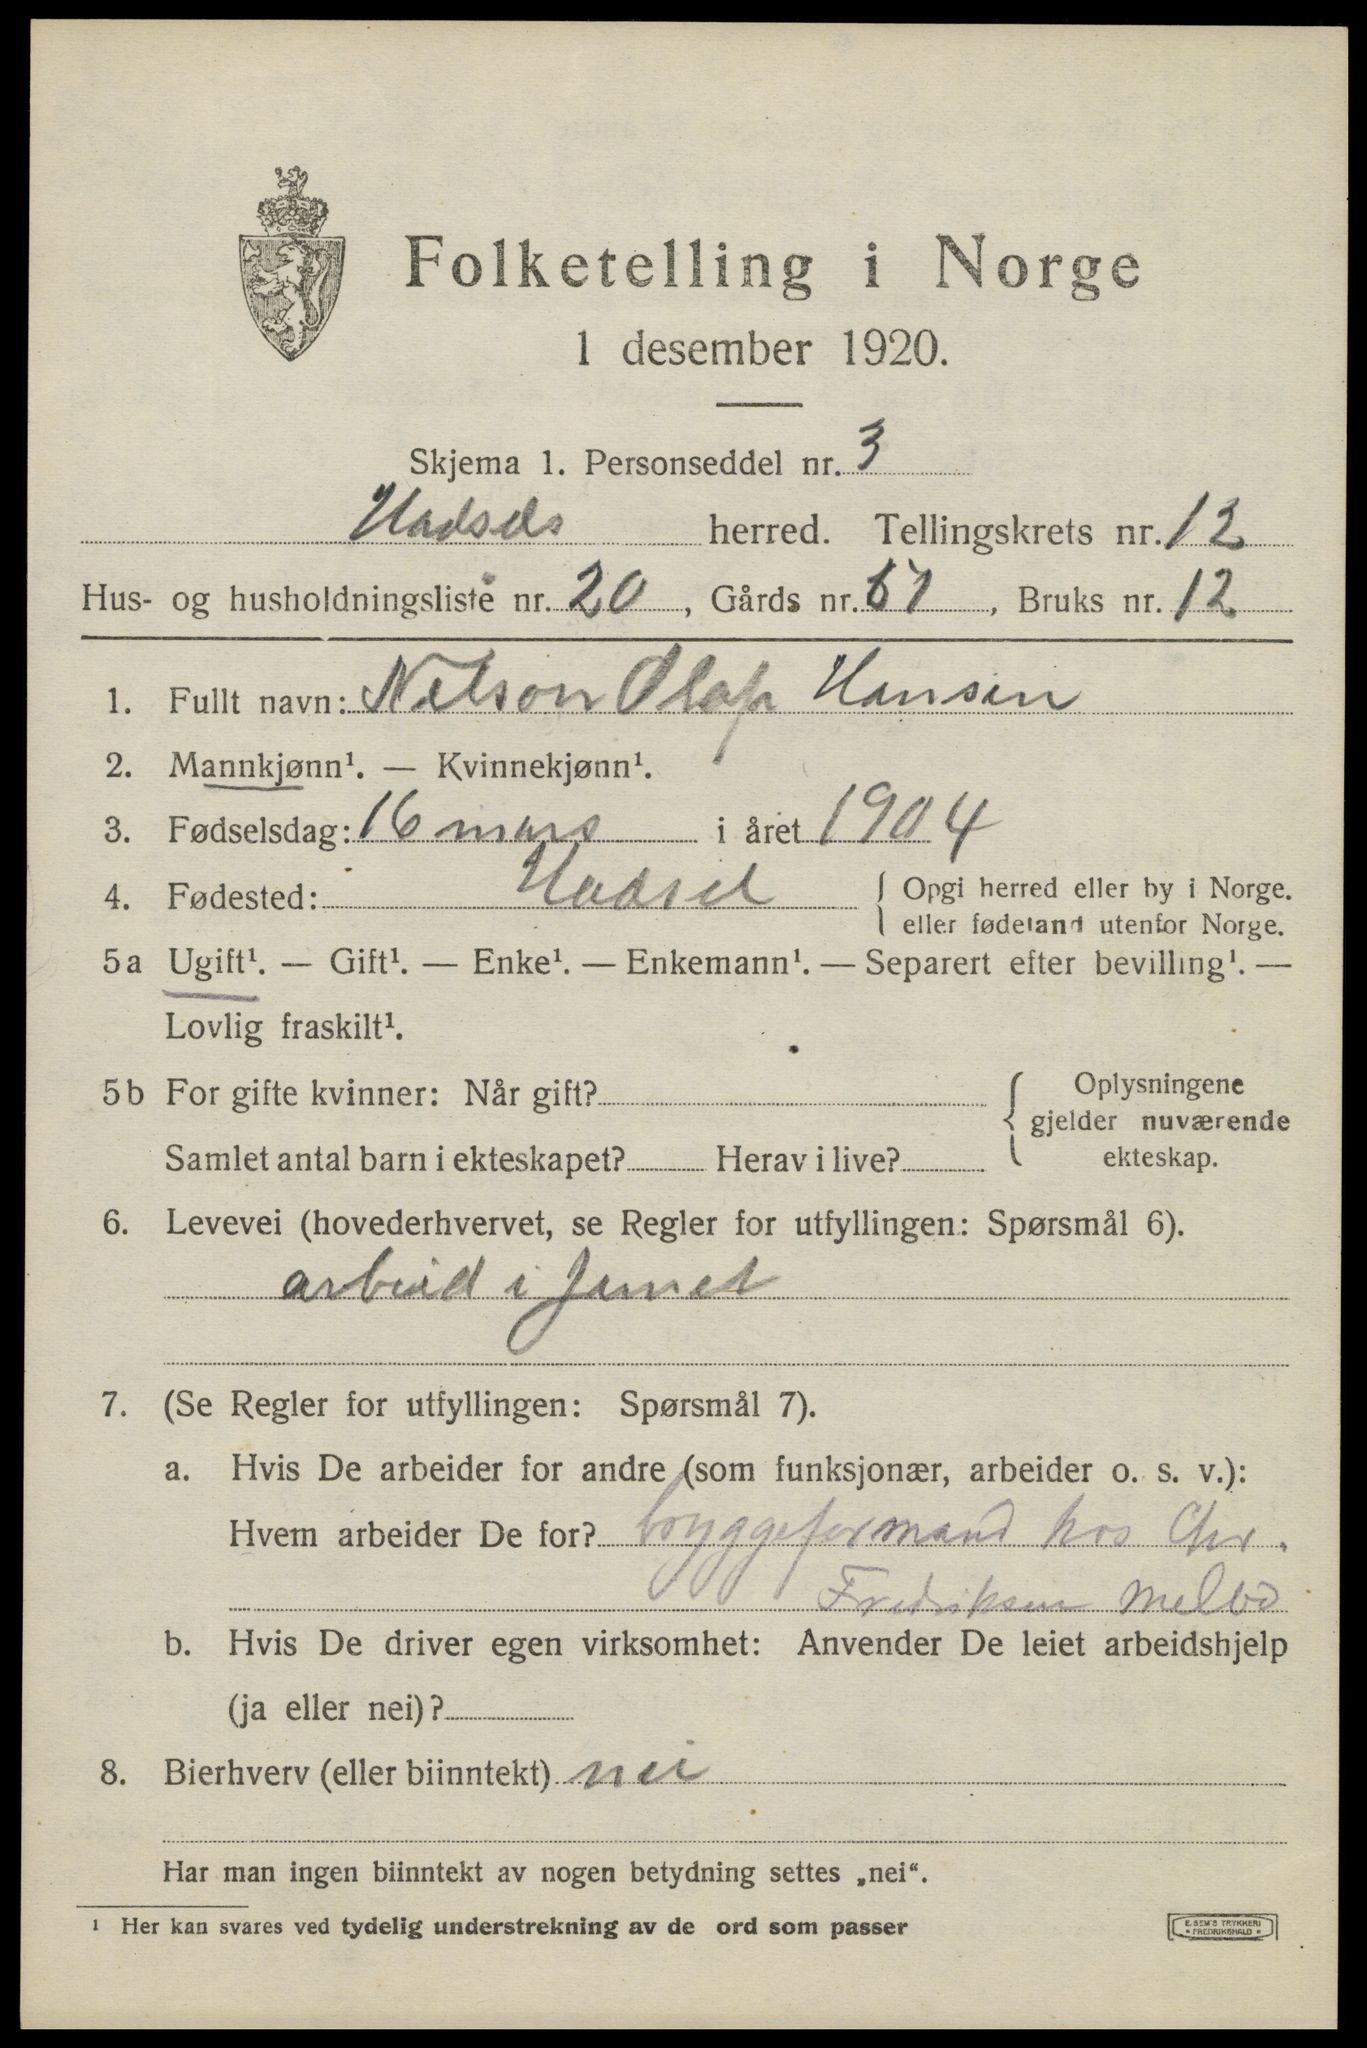 Folketelling i Norge
1 desember 1920.
Skjema 1. Personseddel nr. 3
Hadsels herred. Tellingskrets nr. 12
Hus- og husholdningsliste nr. 20, Gårds nr. 67, Bruks nr. 12
1. Fullt navn: Nelson Olaf Hansen
2. Mannkjønn¹. — Kvinnekjønn¹.
3. Fødselsdag: 16 mars i året 1904
4. Fødested: Hadsel { Opgi herred eller by i Norge.
eller fødeland utenfor Norge.
5a Ugift¹. — Gift¹. — Enke¹. — Enkemann¹. — Separert efter bevilling¹. —
Lovlig fraskilt¹.
5b For gifte kvinner: Når gift? { Oplysningene
gjelder nuværende
Samlet antal barn i ekteskapet? Herav i live? ekteskap.
6. Levevei (hovederhvervet, se Regler for utfyllingen: Spørsmål 6).
arbeid i
7. (Se Regler for utfyllingen: Spørsmål 7).
a. Hvis De arbeider for andre (som funksjonær, arbeider o. s. v.):
Hvem arbeider De for? bryggeformand hos Chr.
Fredriksen Melbo
b. Hvis De driver egen virksomhet: Anvender De leiet arbeidshjelp
(ja eller nei)?
8. Bierhverv (eller biinntekt) nei
Har man ingen biinntekt av nogen betydning settes „nei“.
¹ Her kan svares ved tydelig understrekning av de ord som passer
E. SEM'S TRYKKERI
* FREDRIKSHALD *